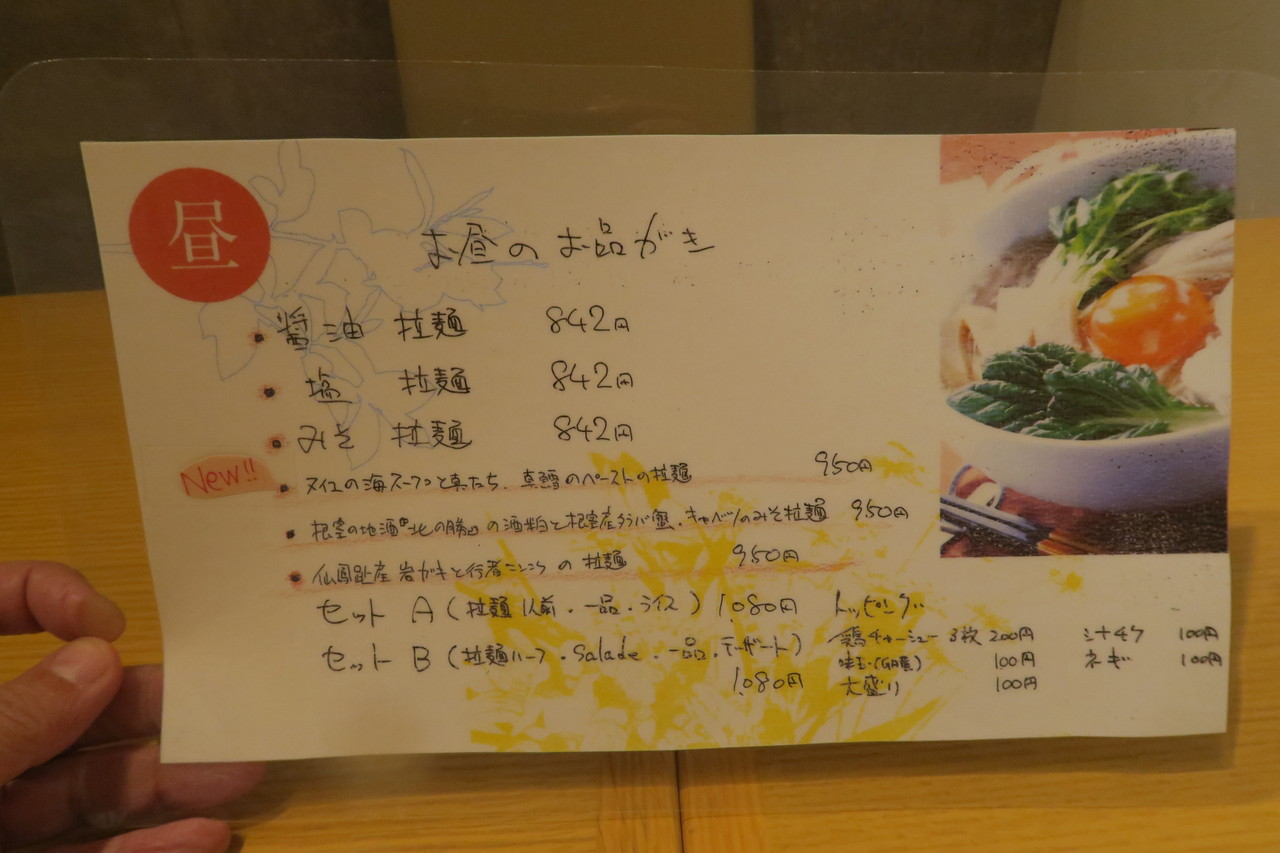 昼
お昼のお品がき
・醤油 拉麺 842円
・塩 拉麺 842円
・みそ 拉麺 842円
New!!
・ の海スープと真たち、真鱈のペーストの拉麺 950円
・根室の地酒『北の勝』の酒粕と根室産タラバ蟹、キャベツのみそ拉麺 950円
・仙鳳趾産 岩ガキと行者ニンニクの 拉麺 950円
セット A (拉麺1人前・一品・ライス) 1080円
セット B (拉麺ハーフ・Salade・一品・デザート) 1,080円
トッピング
鶏チャーシュー 3枚 200円
味玉 100円
大盛り 100円
100円
ネギ 100円